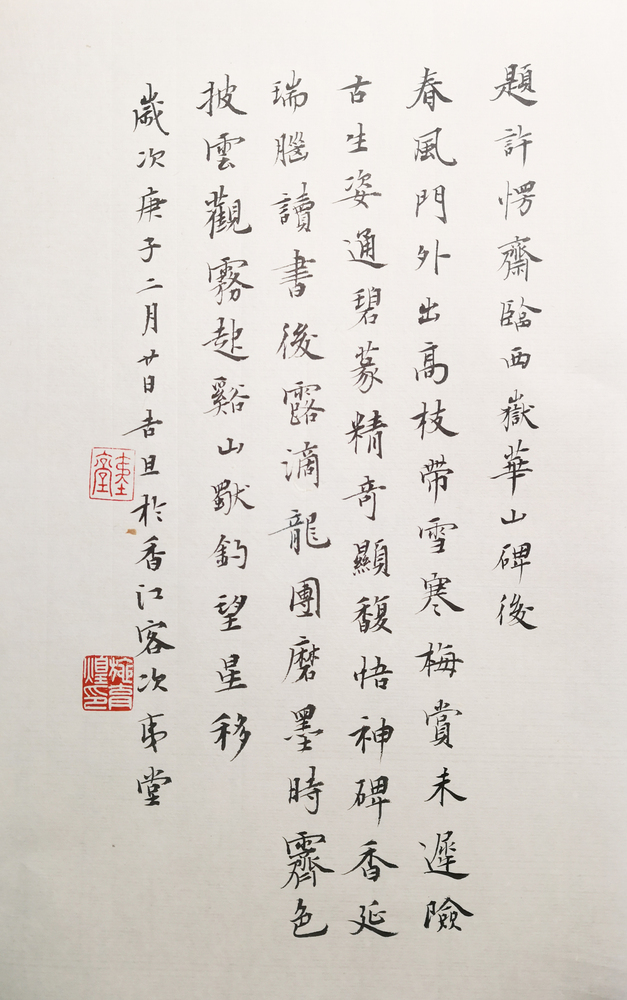 題許愣齋臨西嶽華山碑後
春風門外出高枝帶雪寒梅賞未遲險
古生姿通碧篆精奇顯馥悟神碑香延
瑞腦讀書後露滴龍團磨墨時霽色
披雲觀霧起谿山歇釣望星移
歲次庚子二月廿日吉旦於香江客次夷堂